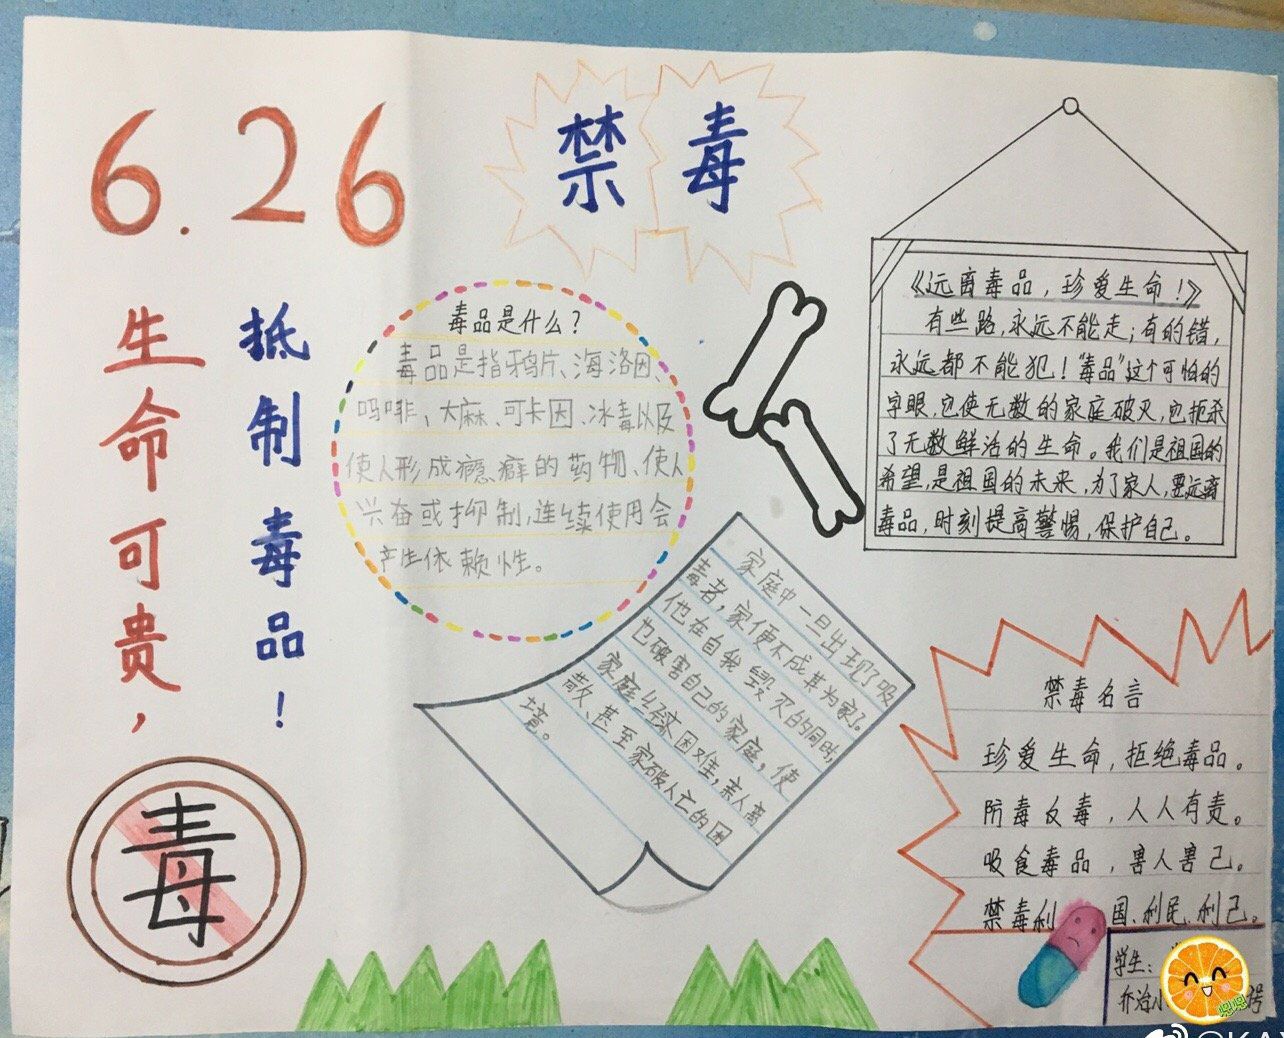 6.26
禁毒
生命可贵，
抵制毒品！
毒
毒品是什么？
毒品是指鸦片、海洛因、
吗啡、大麻、可卡因、冰毒以及
使人形成瘾癖的药物、使人
兴奋或抑制，连续使用会
产生依赖性。
《远离毒品，珍爱生命！》
有些路，永远不能走；有的错，
永远都不能犯！“毒品”这个可怕的
字眼，它使无数的家庭破灭，它扼杀
了无数鲜活的生命。我们是祖国的
希望，是祖国的未来，为了家人，要远离
毒品，时刻提高警惕，保护自己。
家庭中一旦出现了吸
毒者，家便不成其为家了。
他在自我毁灭的同时，
也破害自己的家庭，使
家庭经济困难，亲人离
散、甚至家破人亡的困
境。
禁毒名言
珍爱生命，拒绝毒品。
防毒反毒，人人有责。
吸食毒品，害人害己。
禁毒利国、利民、利己。
学生：
乔治小